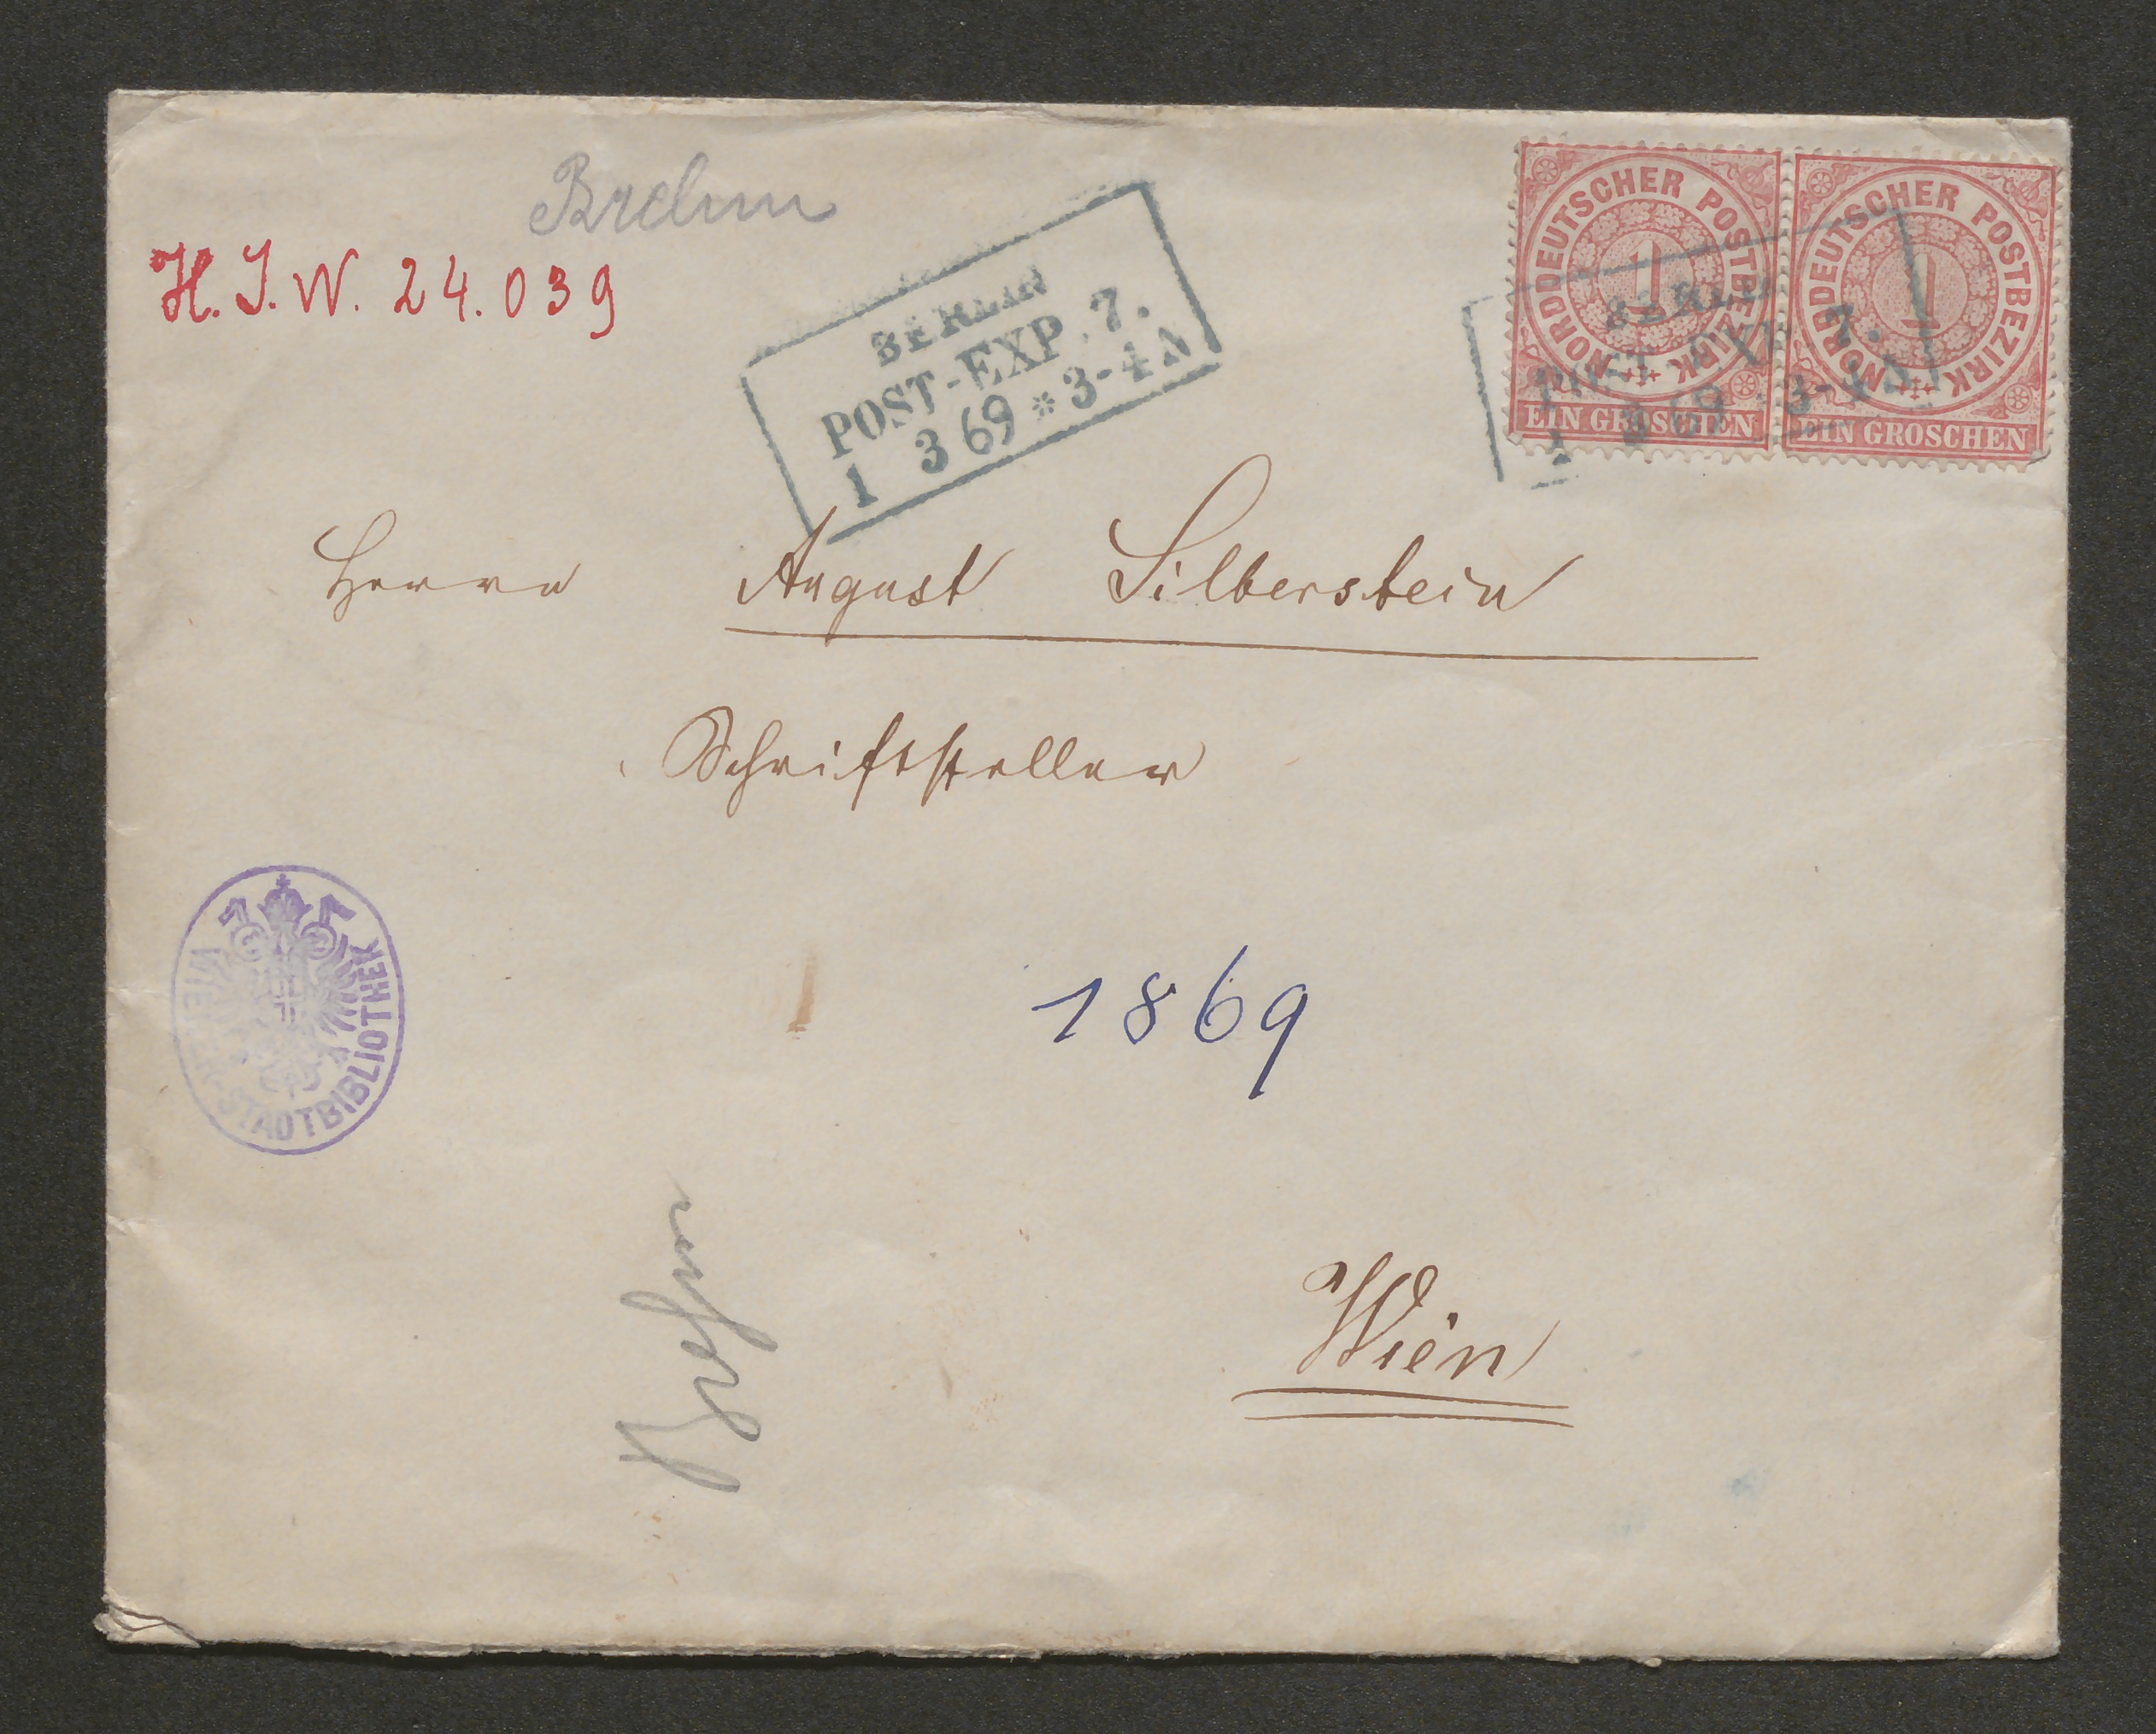 Brehm
H. I. N. 24.039
BERLIN
POST-EXP. 7.
1 3 69 * 3-4 N
NORDDEUTSCHER POSTBEZIRK
1
EIN GROSCHEN
NORDDEUTSCHER POSTBEZIRK
1
EIN GROSCHEN
BERLIN
POST-EXP. 7.
1 3 69 * 3-4 N
Herrn August Silberstein
Schriftsteller
WIENER STADTBIBLIOTHEK
1869
Wien